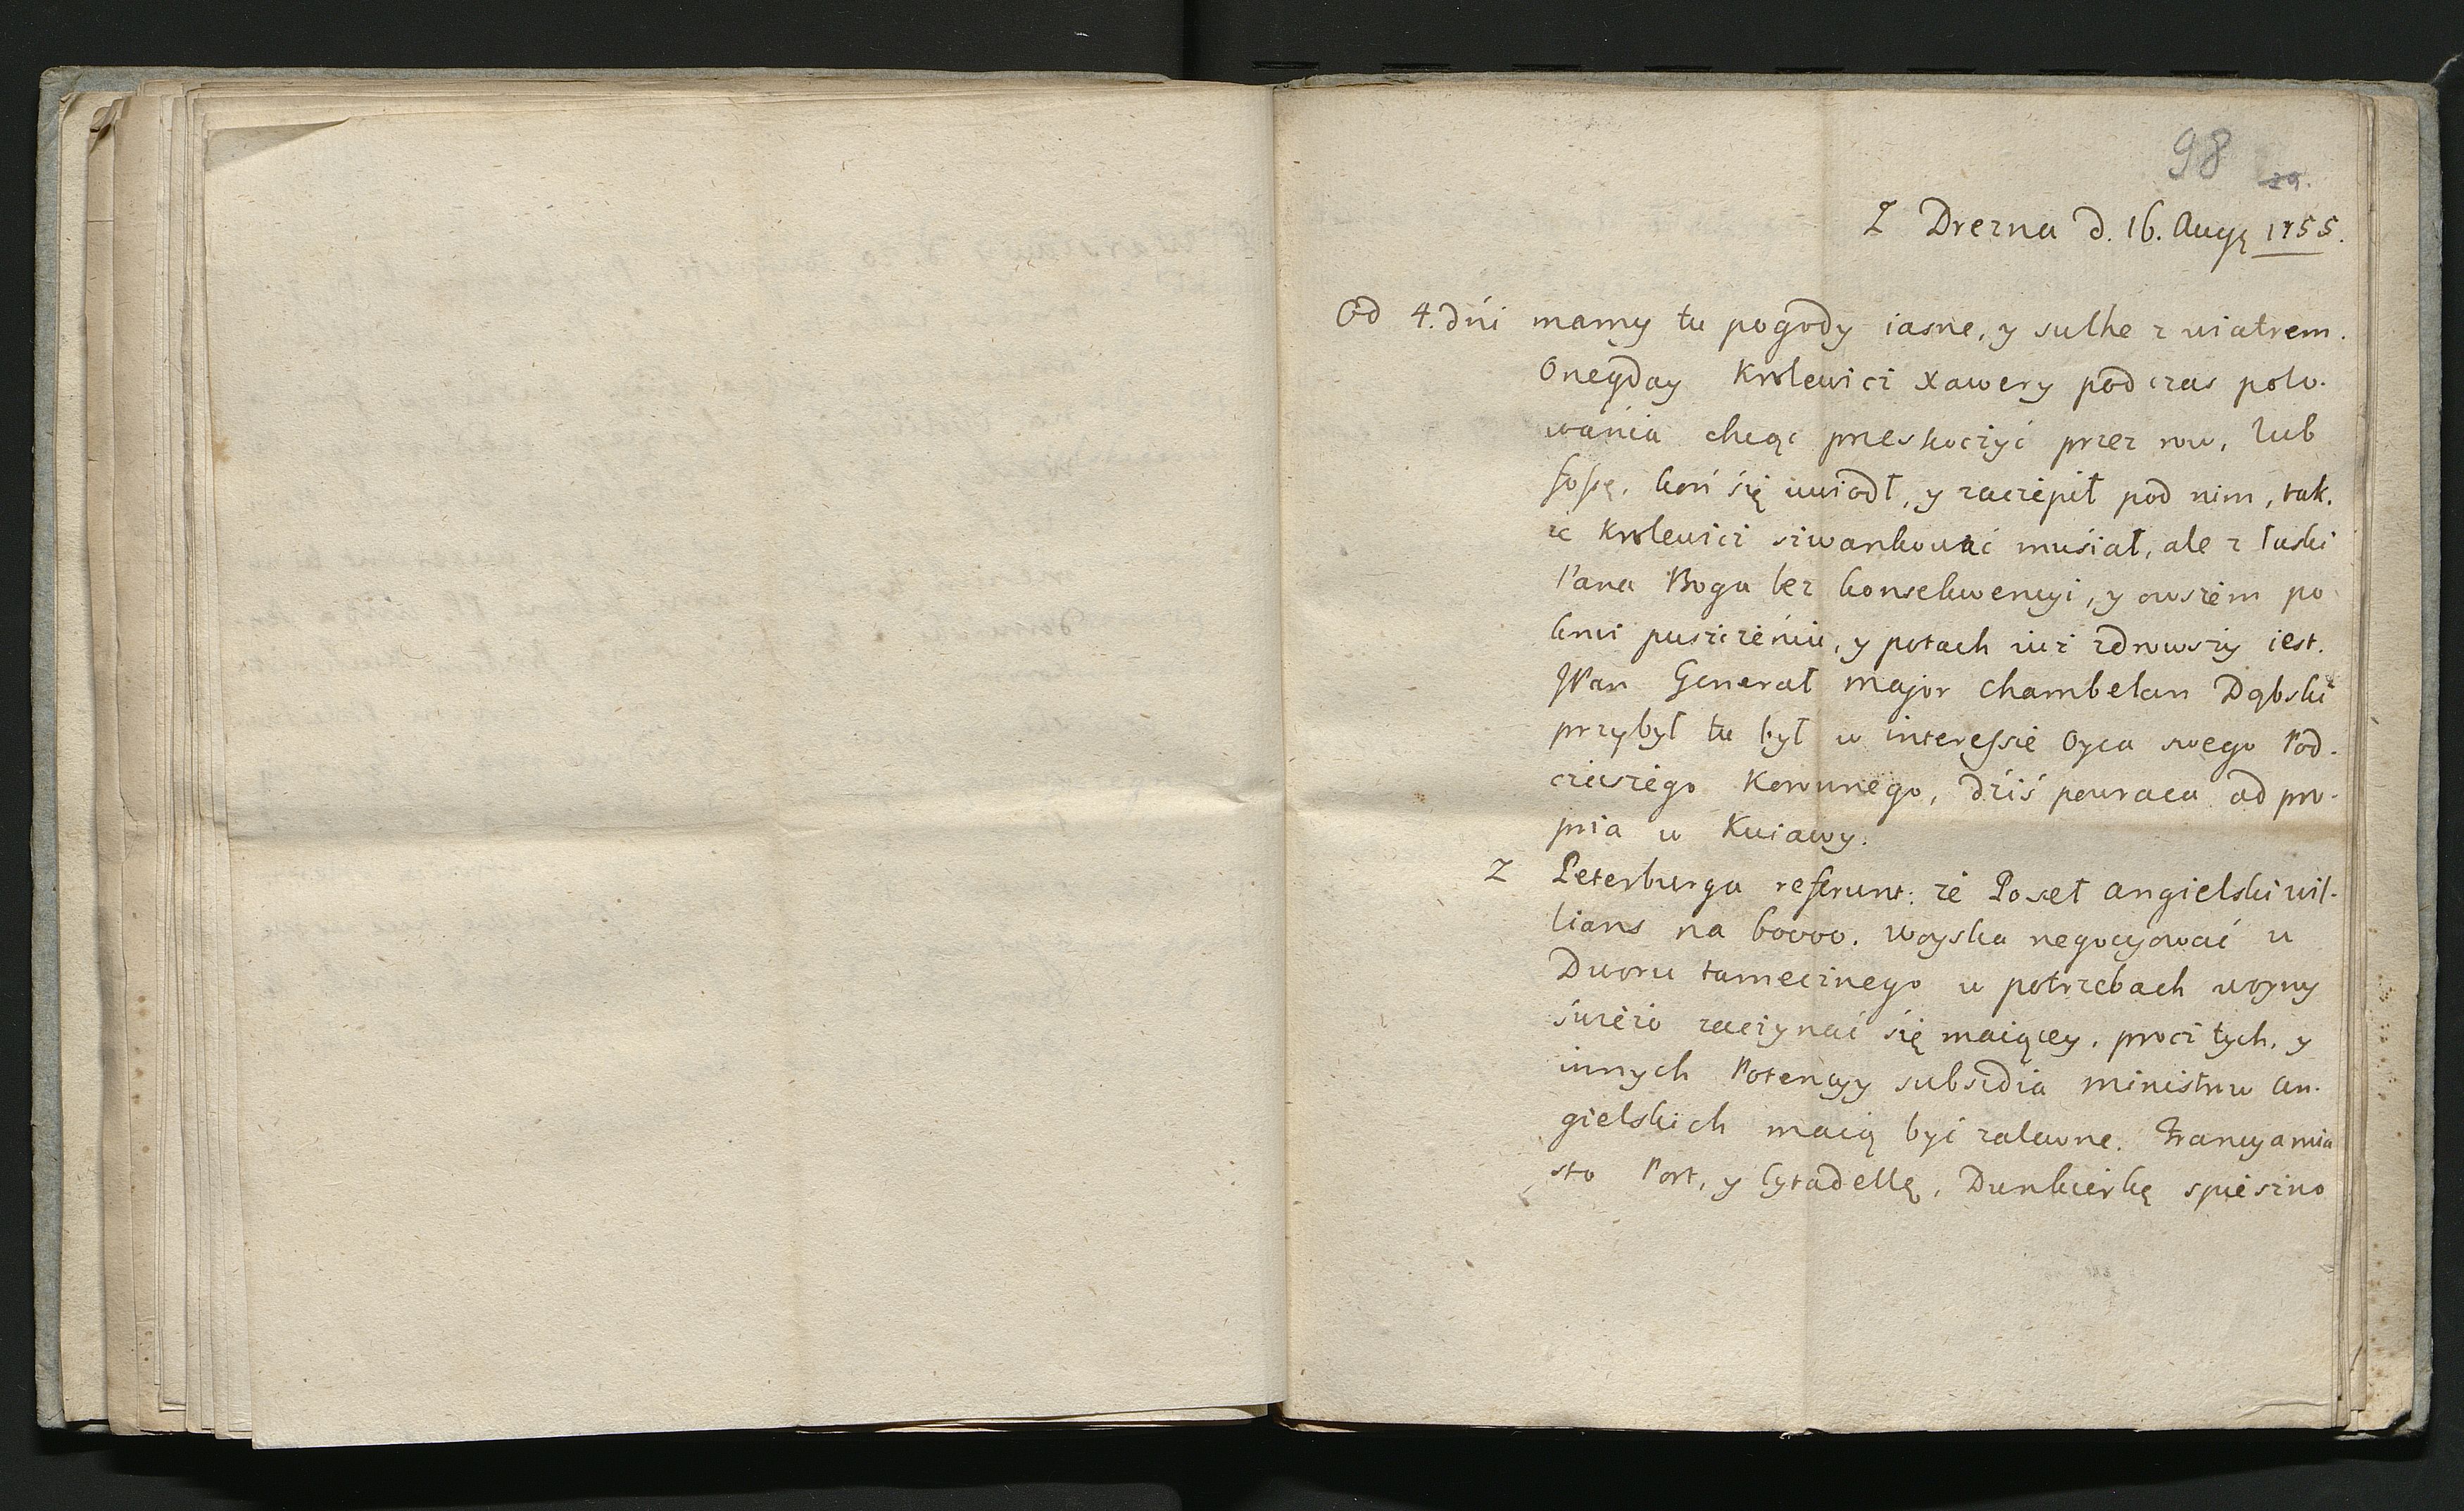 98
29.
Z Drezna d. 16. Augę 1755.
Od 4. dńi mamy tu pogody iasne, y suche z wiatrem.
Onegday Krolewicz Xawery podczas polo-
wánia chcąc przeskoczyć przez row, lub
fossę, koń się uwiodł, y zaczepił pod nim, tak,
że Krolewicz szwankować muśiał, ale z łaski
Pana Boga bez konsekwencyi, y owszem po
krwi puszczeńiu, y potach iuż zdrowszy iest.
JPan Generał major Chambelan Dąbski
przybył tu był w interessie Oyca swego Pod-
czaszego Koronnego, dźiś powraca ad pro-
pria w Kuiawy.
Z Peterburga referunt: że Poseł angielski Wil-
lians na 60000. woyska negocyować u
Dworu tamecznego w potrzebach woyny
świeżo zaczynać się maiącey, procz tych, y
innych Potencyy subsidia ministrow an-
gielskich maią być zalecone. Francya mia
sto Port, y Cytadellę, Dunkierkę spieszno